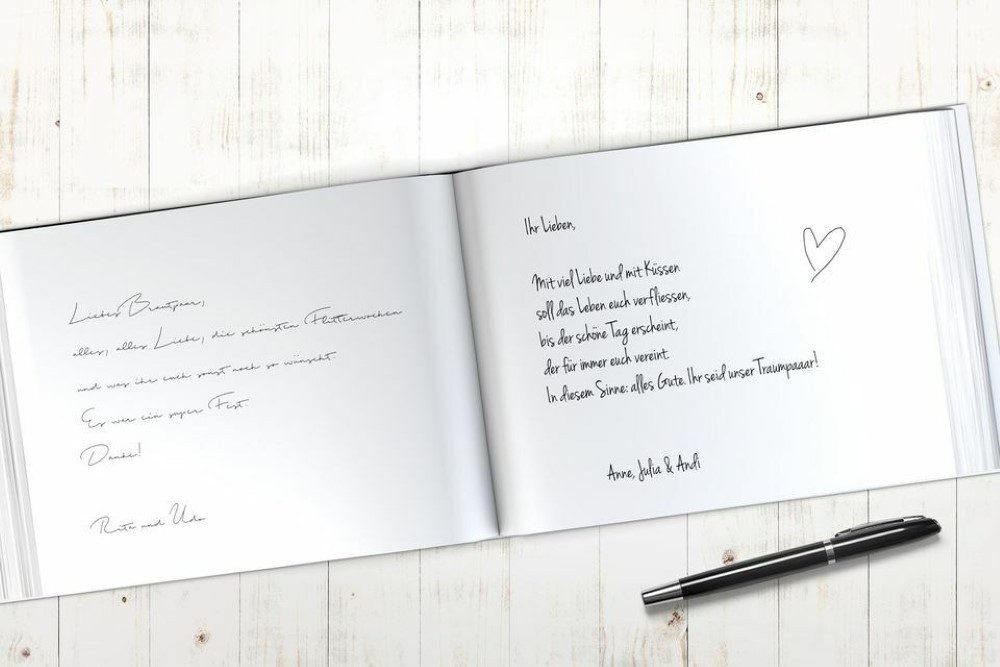 Liebes Brautpaar,
alles, alles Liebe, die schönsten Flitterwochen
und was ihr euch sonst noch so wünscht
Es war ein super Fest.
Danke!
Rita und Udo
Ihr Lieben,
Mit viel Liebe und mit Küssen
soll das Leben euch verfliessen,
bis der schöne Tag erscheint,
der für immer euch vereint.
In diesem Sinne: alles Gute. Ihr seid unser Traumpaaar!
Anne, Julia & Andi